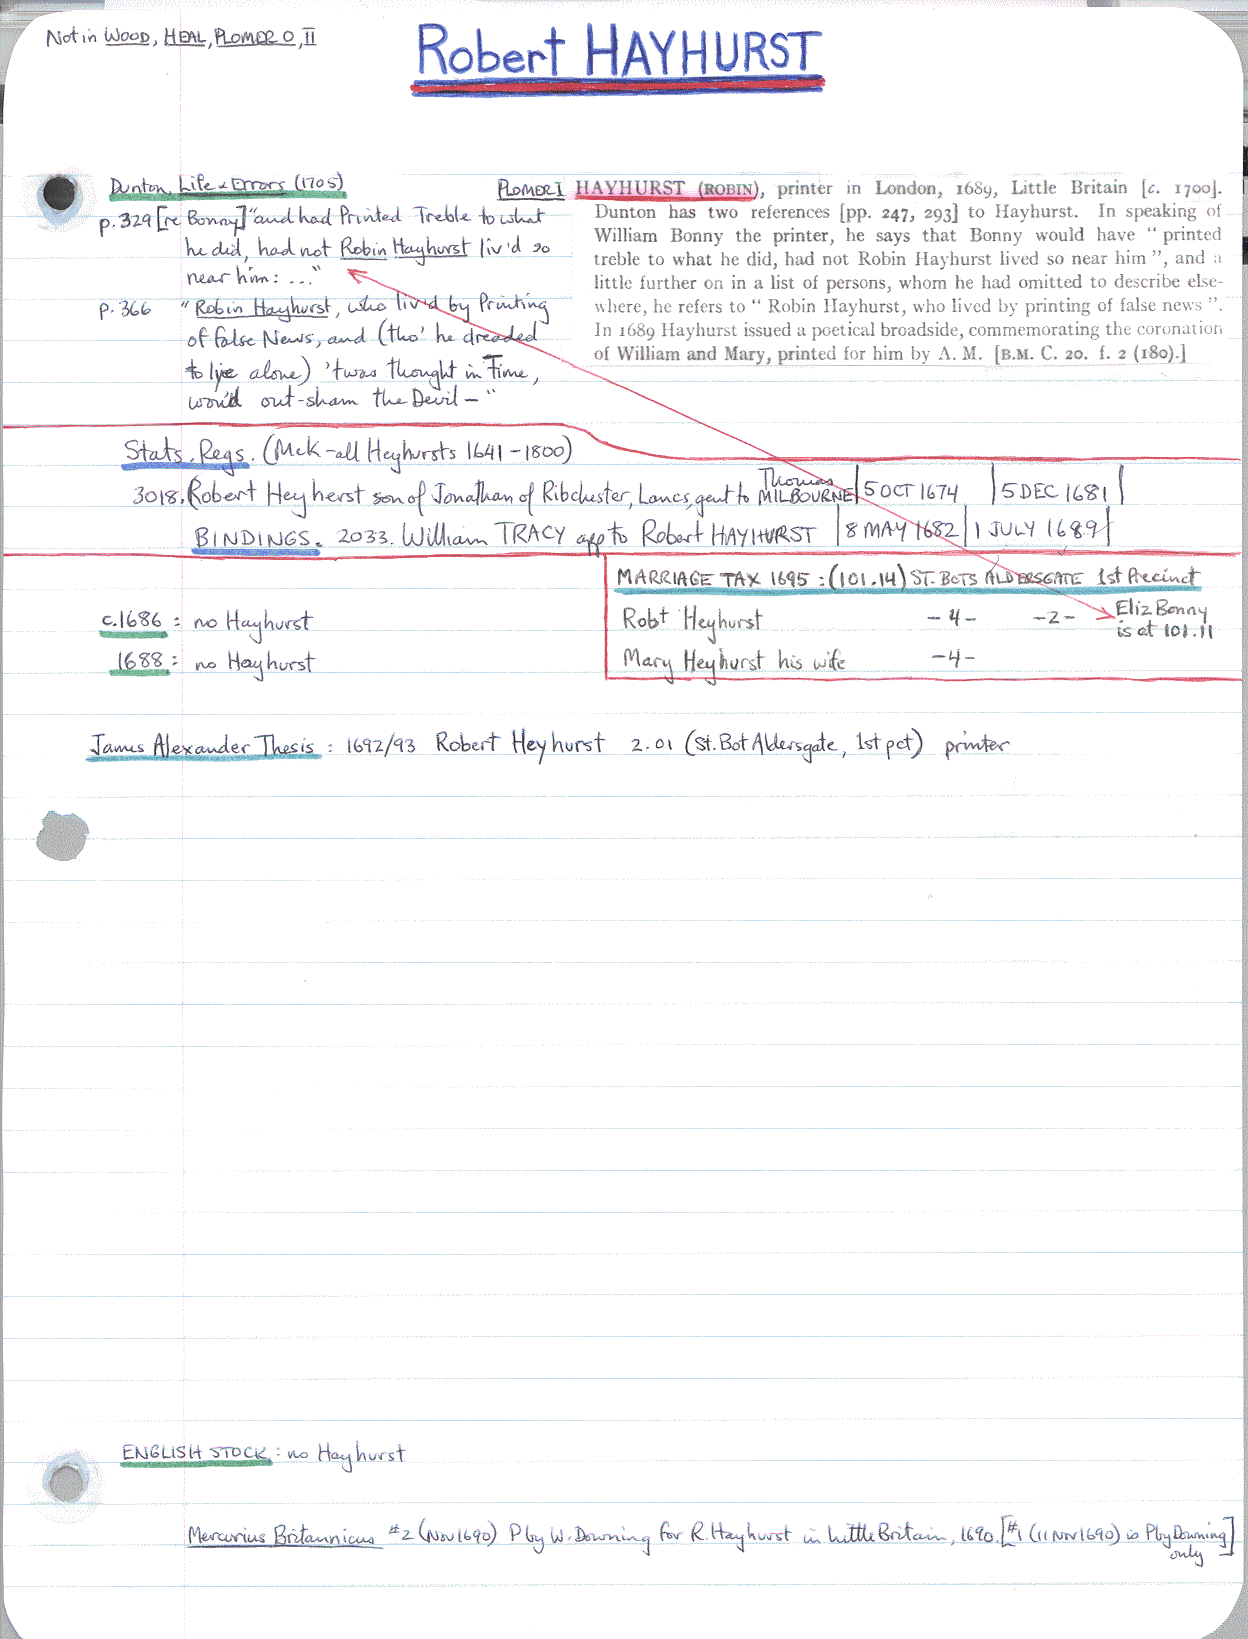 Not in WOOD, HEAL, PLOMER O, II
Robert HAYHURST
Dunton, Life & Errors (1705)
p. 329 [re Bonny] "and had Printed Treble to what
he did, had not Robin Hayhurst liv'd so
near him: ..."
p. 366 "Robin Hayhurst, who liv'd by Printing
of false News, and (tho' he dreaded
to lye alone) 'twas thought in Time,
wou'd out-sham the Devil — "
PLOMER I HAYHURST (ROBIN), printer in London, 1689, Little Britain [c. 1700].
Dunton has two references [pp. 247, 293] to Hayhurst. In speaking of
William Bonny the printer, he says that Bonny would have " printed
treble to what he did, had not Robin Hayhurst lived so near him ", and a
little further on in a list of persons, whom he had omitted to describe else-
where, he refers to " Robin Hayhurst, who lived by printing of false news ".
In 1689 Hayhurst issued a poetical broadside, commemorating the coronation
of William and Mary, printed for him by A. M. [B.M. C. 20. f. 2 (180).]
Stats. Regs. (McK - all Heyhursts 1641-1800)
3018. Robert Heyherst son of Jonathan of Ribchester, Lancs, gent to Thomas MILBOURNE | 5 OCT 1674 | 5 DEC 1681 |
BINDINGS. 2033. William TRACY app to Robert HAYHURST | 8 MAY 1682 | 1 JULY 1689 |
MARRIAGE TAX 1695 : (101.14) ST. BOTS ALDERSGATE 1st Precinct
Robt Heyhurst - 4 - - 2 - Eliz Bonny
is at 101.11
Mary Heyhurst his wife - 4 -
c.1686 : no Hayhurst
1688 : no Hayhurst
James Alexander Thesis : 1692/93 Robert Heyhurst 2.01 (St. Bot Aldersgate, 1st pct) printer
ENGLISH STOCK : no Hayhurst
Mercurius Britannicus #2 (Nov 1690) P by W. Downing for R. Hayhurst in Little Britain, 1690. [#1 (11 Nov 1690) is P by Downing
only]